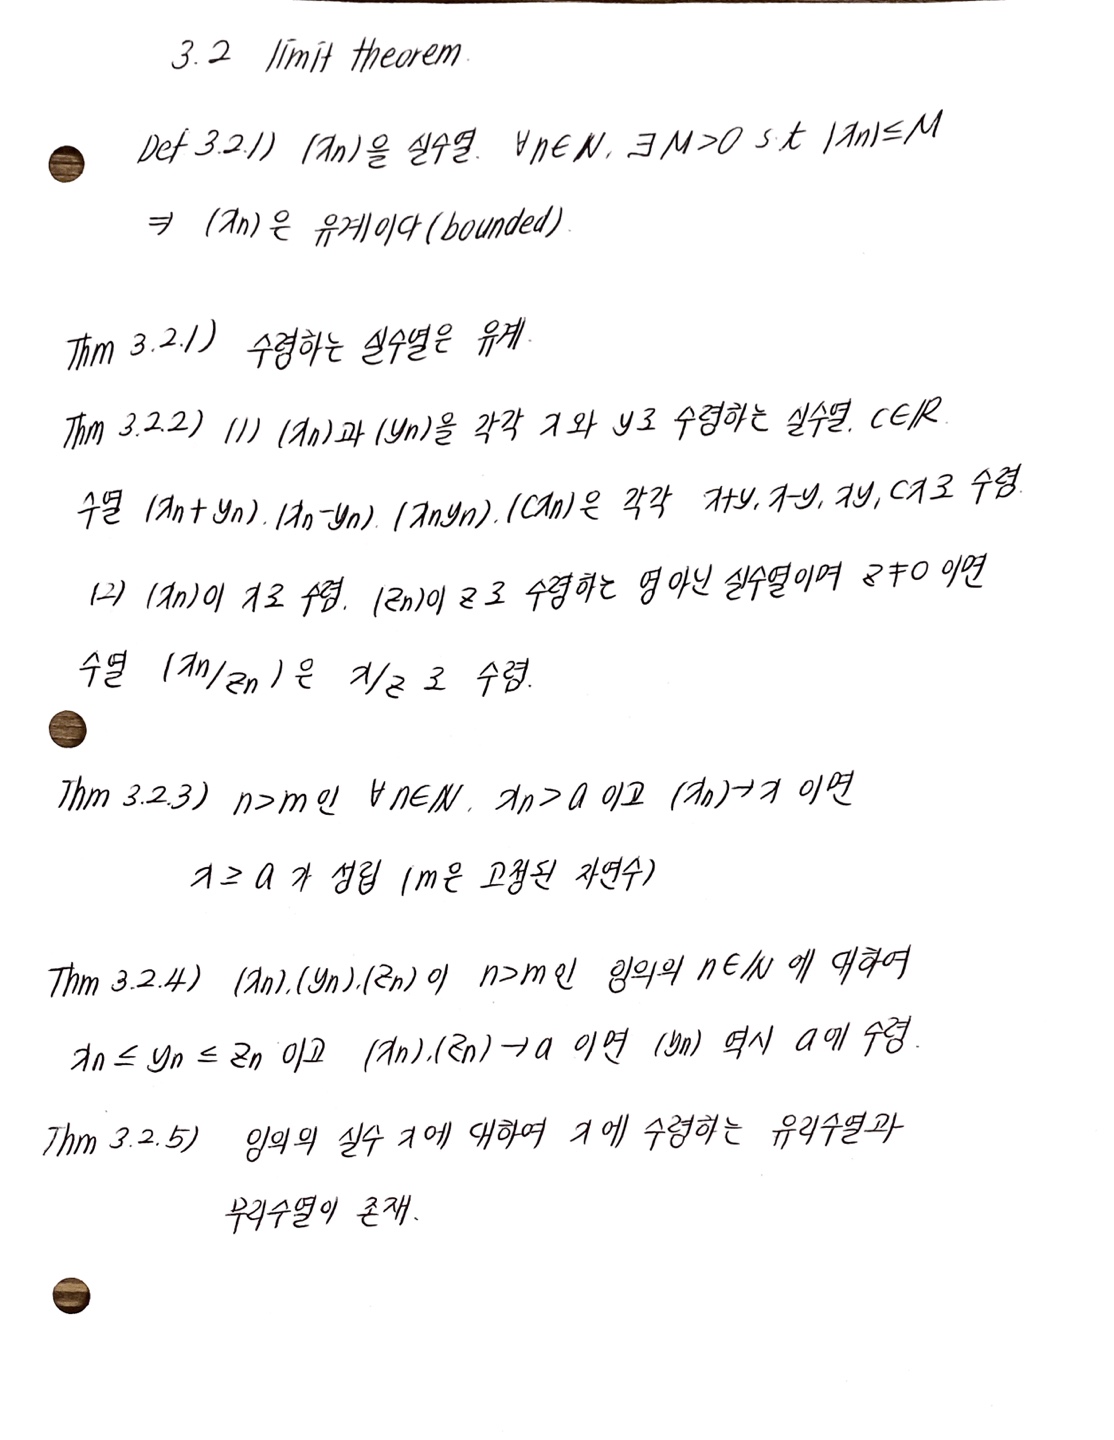 3.2 limit theorem.
Def 3.2.1) (xn)을 실수열. ∀n∈N, ∃M>0 s.t |xn|≤M
⇒ (xn)은 유계이다(bounded).
Thm 3.2.1) 수렴하는 실수열은 유계.
Thm 3.2.2) (1) (xn)과 (yn)을 각각 x와 y로 수렴하는 실수열. c∈R.
수열 (xn+yn), (xn-yn), (xnyn), (cxn)은 각각 x+y, x-y, xy, cx로 수렴.
(2) (xn)이 x로 수렴. (zn)이 z로 수렴하는 영 아닌 실수열이며 z≠0 이면
수열 (xn/zn)은 x/z 로 수렴.
Thm 3.2.3) n>m인 ∀n∈N, xn>a 이고 (xn)→x 이면
x≥a가 성립 (m은 고정된 자연수)
Thm 3.2.4) (xn),(yn),(zn)이 n>m인 임의의 n∈N에 대하여
xn≤yn≤zn 이고 (xn),(zn)→a 이면 (yn) 역시 a에 수렴.
Thm 3.2.5) 임의의 실수 x에 대하여 x에 수렴하는 유리수열과
무리수열이 존재.